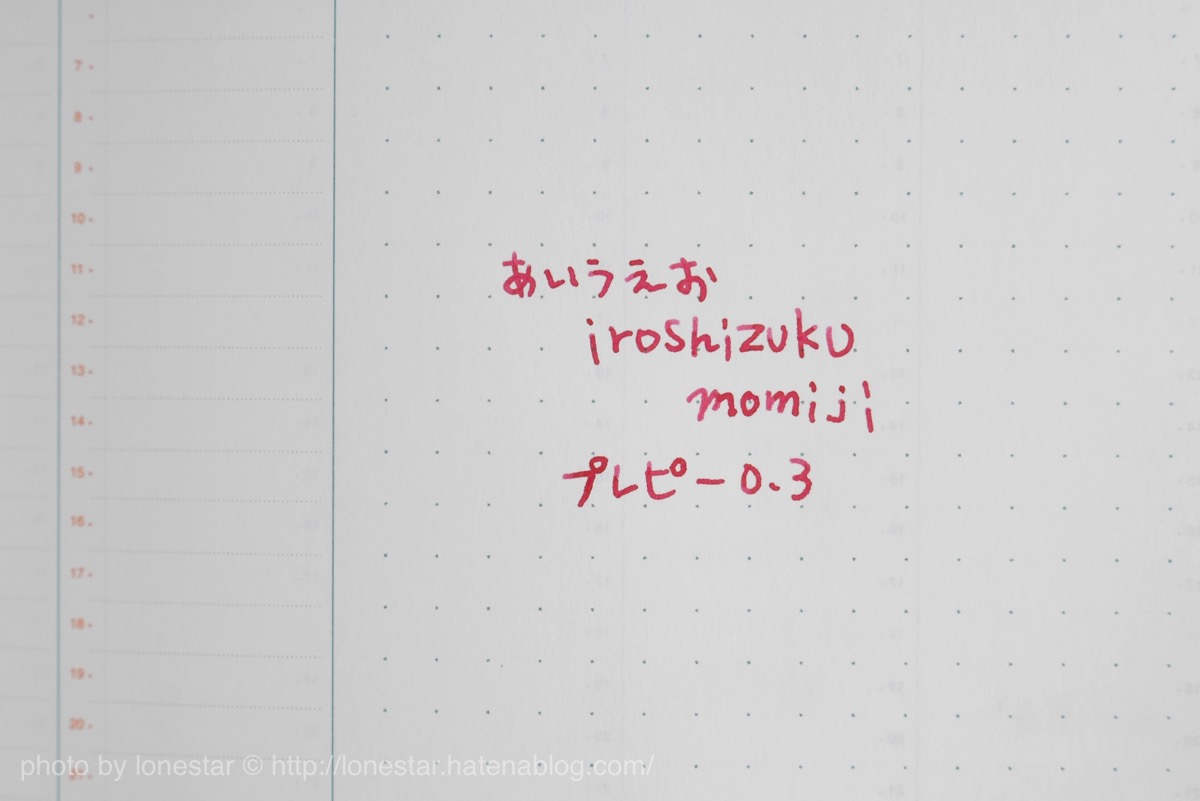 7
8
9
10
11
12
13
14
15
16
17
18
19
20
あいうえお
iroshizuku
momiji
プレピー0.3
photo by lonestar © http://lonestar.hatenablog.com/